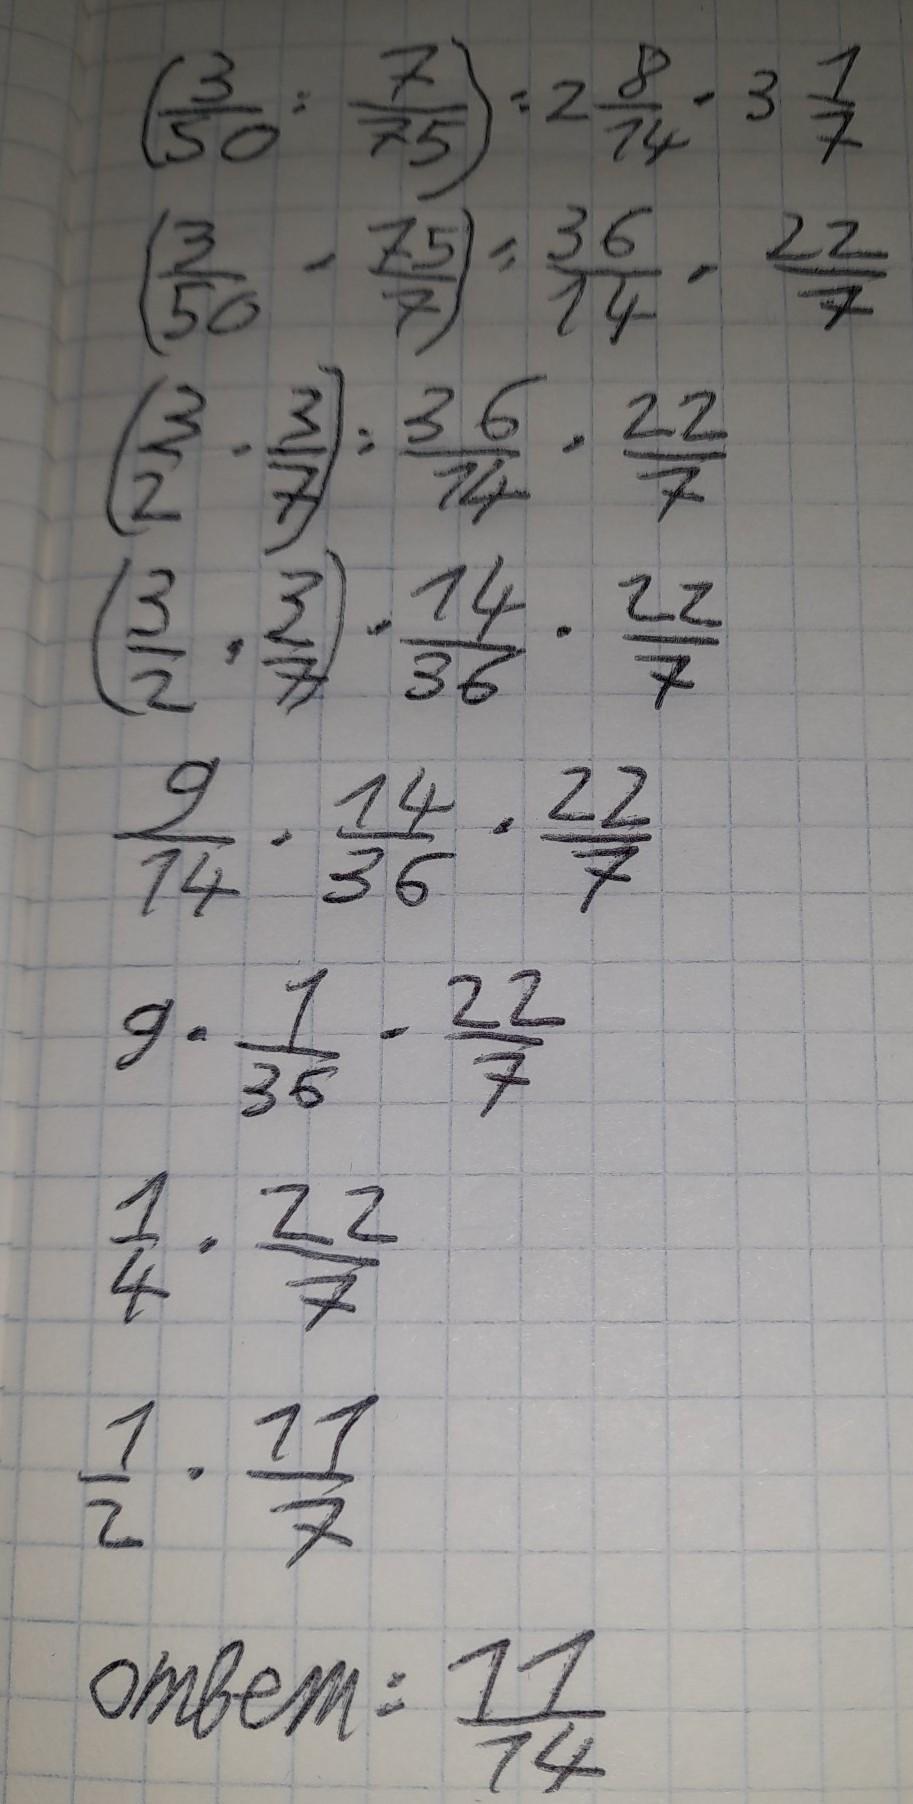 (3/50 : 7/75) : 2 8/14 · 3 1/7
(3/50 · 75/7) : 36/14 · 22/7
(3/2 · 3/7) : 36/14 · 22/7
(3/2 · 3/7) · 14/36 · 22/7
9/14 · 14/36 · 22/7
9 · 1/36 · 22/7
1/4 · 22/7
1/2 · 11/7
ответ: 11/14